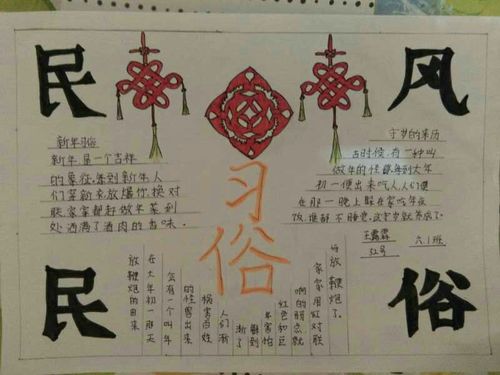 民
风
习
俗
民
俗
新年习俗
新年是一个吉祥
的象征,每到新年人
们等新衣放爆竹,换对
联,家家都赶做年菜,到
处洒满了酒肉的香味。
守岁的来历
古时候,有一种叫
做年的怪兽,每到大年
初一便出来吃人,人们便
在那一晚上躲在家吃年夜
饭,
王露霖
六.1班
52号
放鞭炮的由来
在大年初一那天
会有一个叫年
的怪兽出来
祸害百姓
人们渐
渐了
解到
年害怕
红色和巨
响的
家家用红对联
与放鞭炮了。